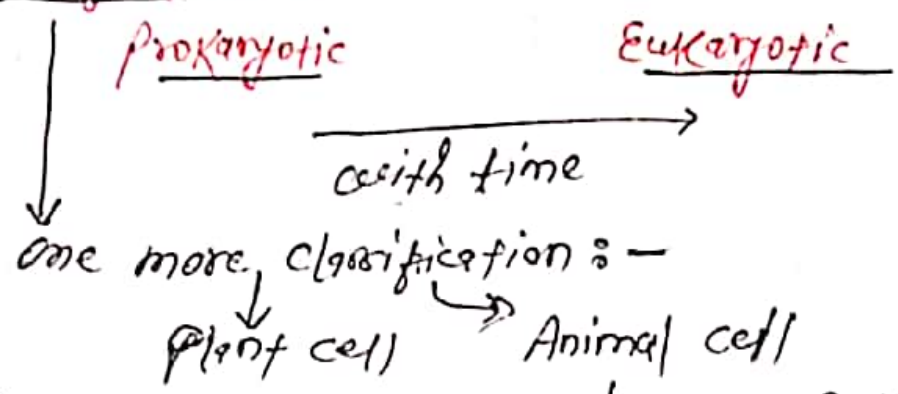 Prokaryotic Eukaryotic
with time
one more classification :-
Plant cell Animal cell